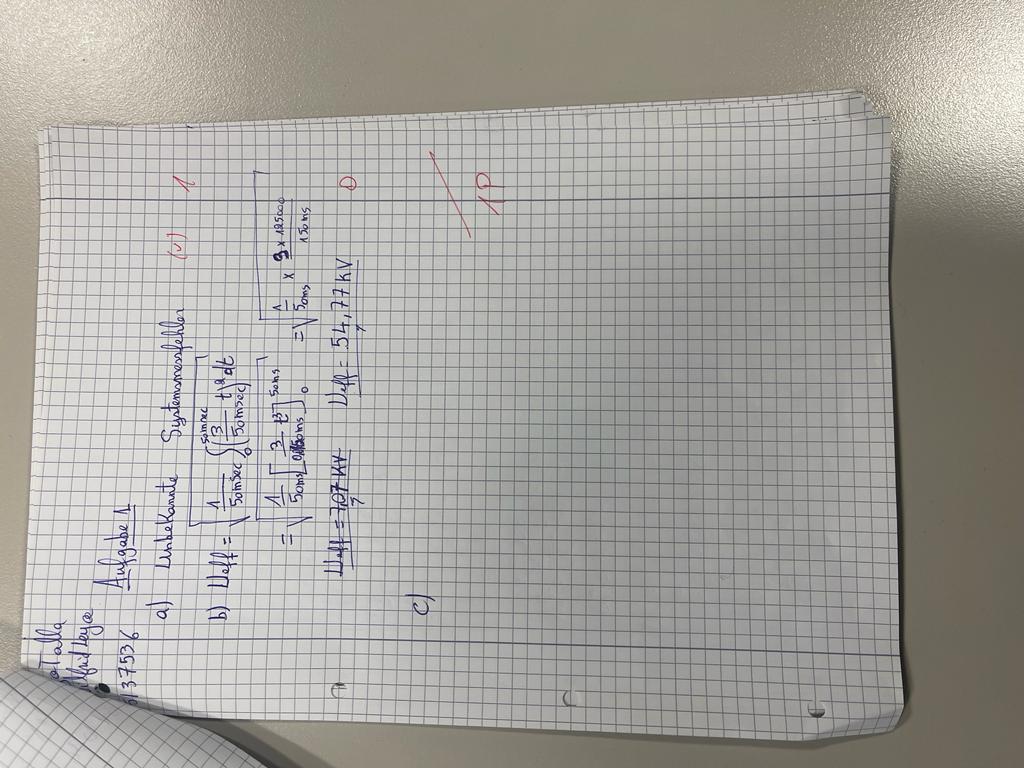 Aufgabe 1
37536
a) Unbekannte Systemmessfehler (√) 1
b) Ueff = √ 1/50msec ∫₀^50msec (3/50msec t)² dt
= √ 1/50ms [3/150ms t³]₀^50ms = √ 1/50ms × 3×125000/150ms
Ueff = 7,07 kV Ueff = 54,77 kV 0
c)
1P